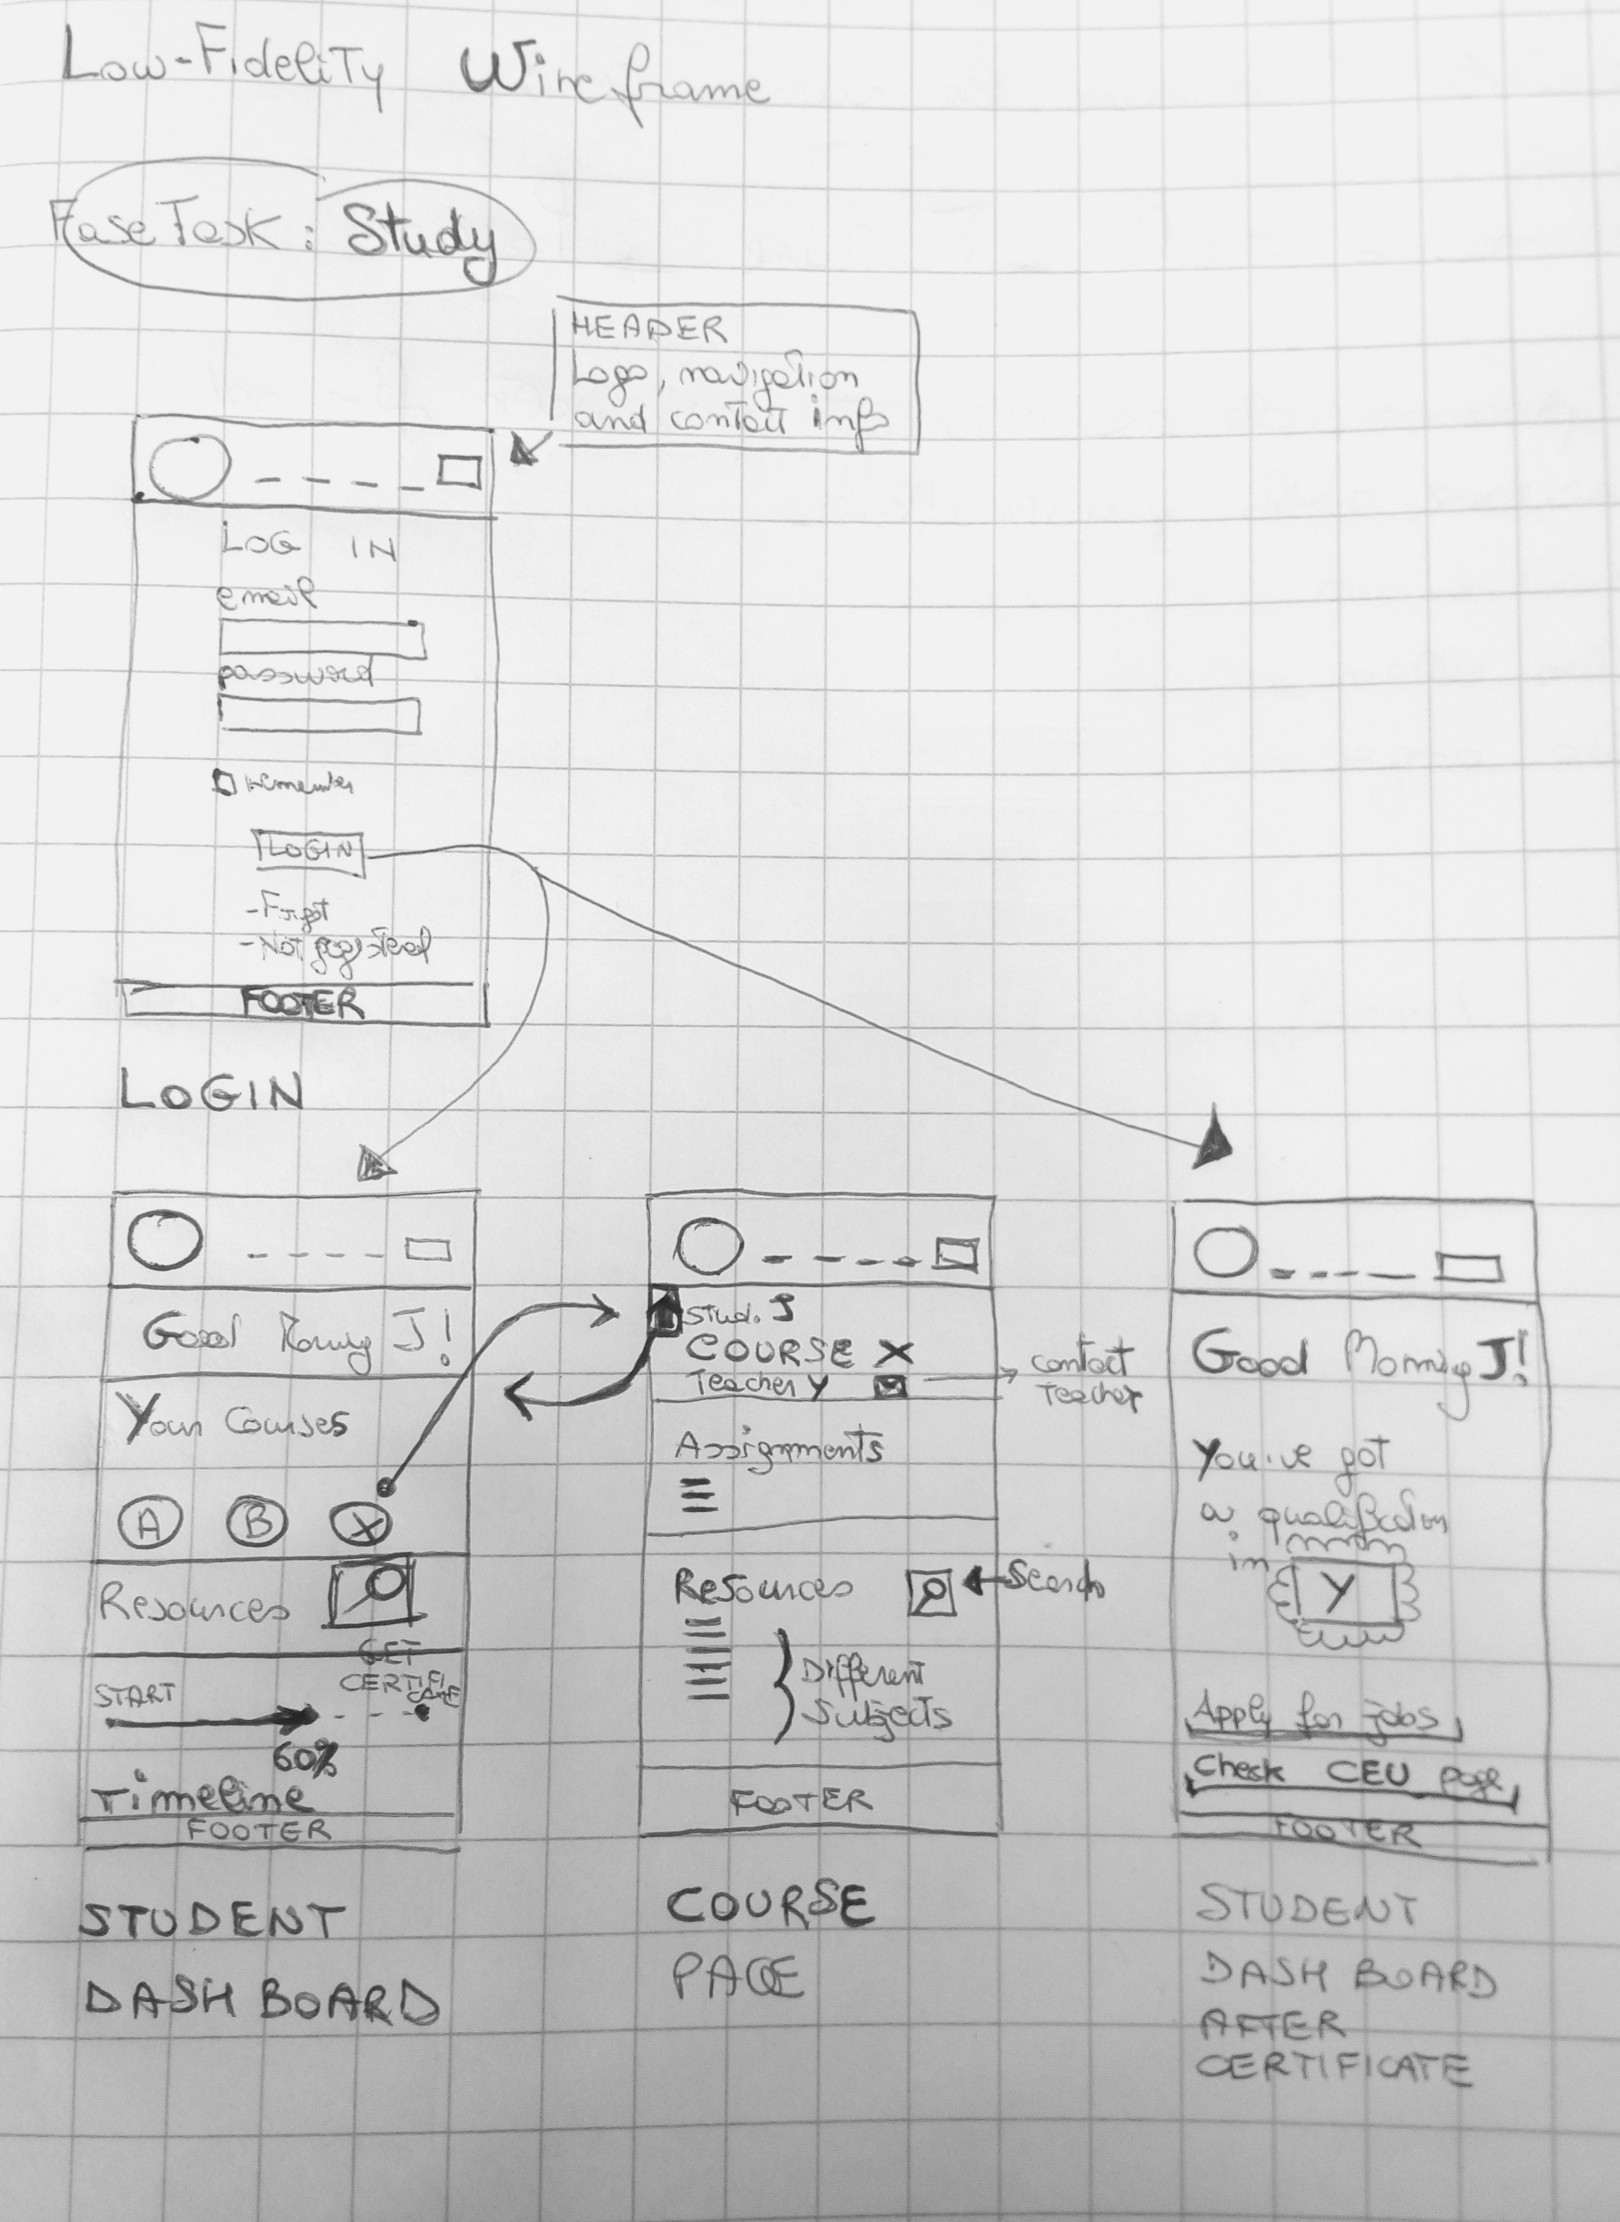 Low-Fidelity Wireframe
Fase Task: Study
HEADER
Logo, navigation
and contact info
LOG IN
email
password
remember
LOGIN
-Forgot
-Not
FOOTER
LOGIN
Good Morning J!
Your Courses
A B X
Resources
GET
CERTIFI
CATE
START
60%
Timeline
FOOTER
STUDENT
DASH BOARD
Stud. J
COURSE X
Teacher Y
contact
teacher
Assignments
Resources
Search
Different
Subjects
FOOTER
COURSE
PAGE
Good Morning J!
You've got
a qualification
in
Y
Apply for jobs
Check CEU page
FOOTER
STUDENT
DASH BOARD
AFTER
CERTIFICATE